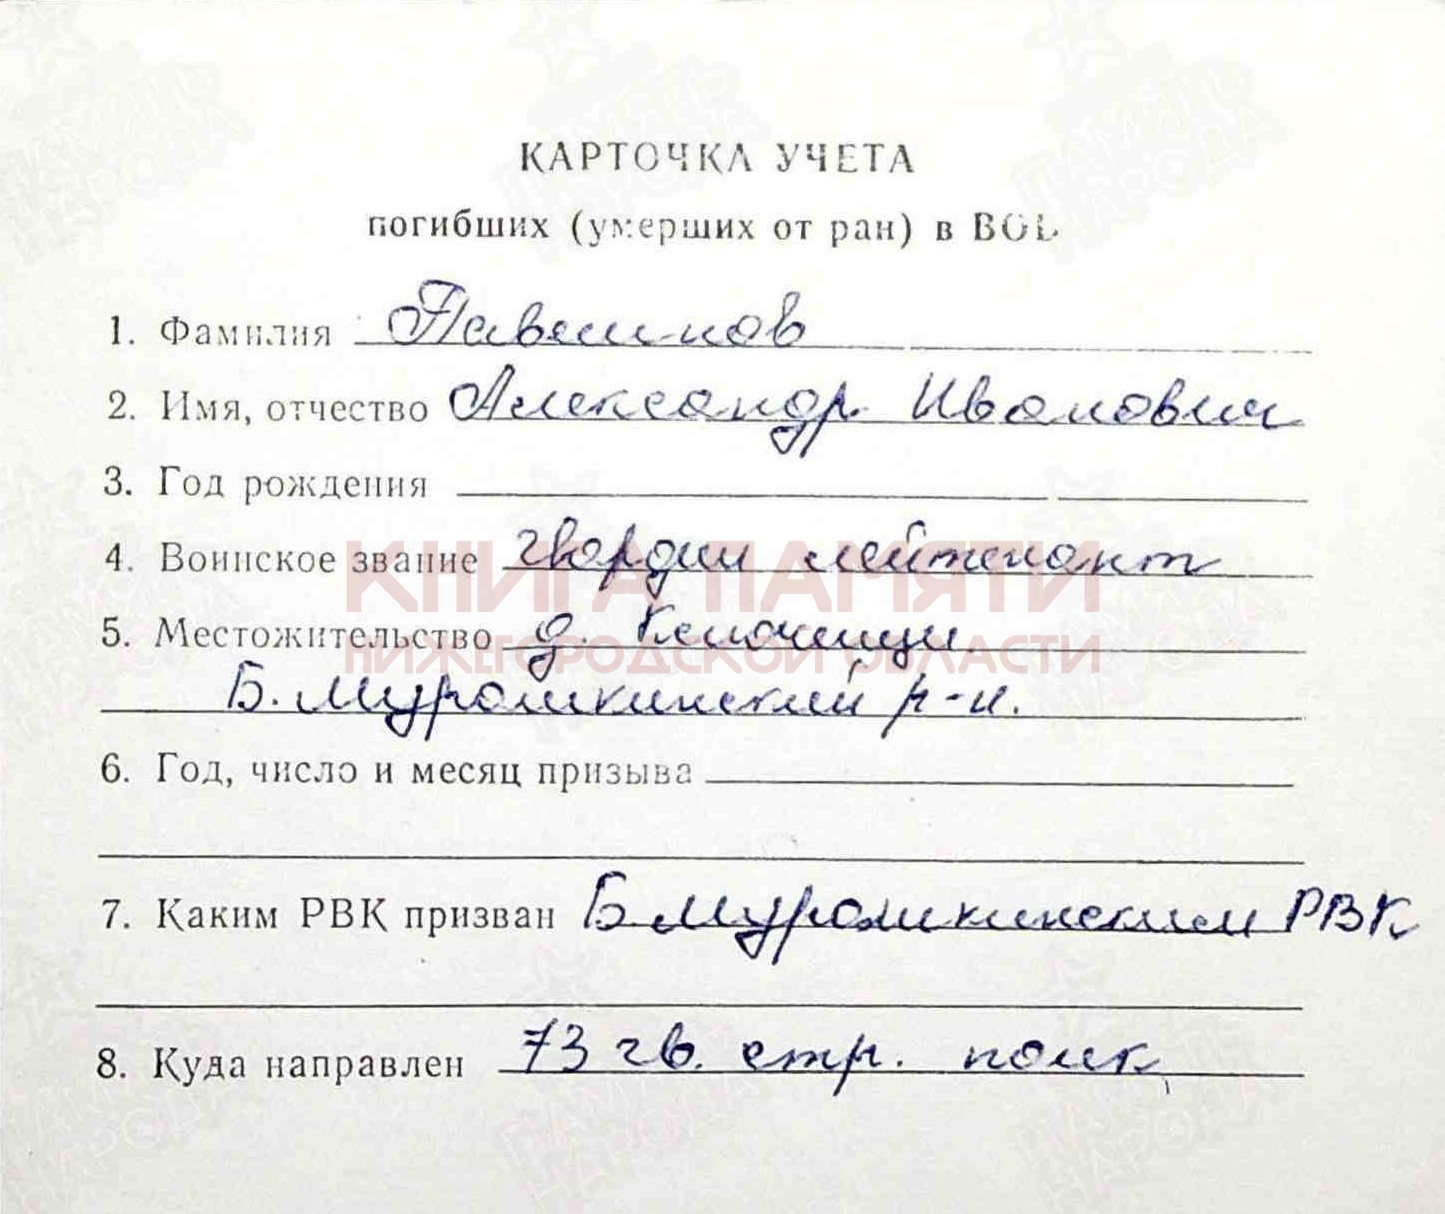 КАРТОЧКА УЧЕТА
погибших (умерших от ран) в ВОВ
1. Фамилия
2. Имя, отчество Александр Иванович
3. Год рождения
4. Воинское звание гвардии лейтенант
КНИГА ПАМЯТИ
5. Местожительство д. Кишочищи
НИЖЕГОРОДСКОЙ ОБЛАСТИ
Б. Мурашкинский р-н.
6. Год, число и месяц призыва
7. Каким РВК призван Б Мурашкинским РВК
8. Куда направлен 73 гв. стр. полк